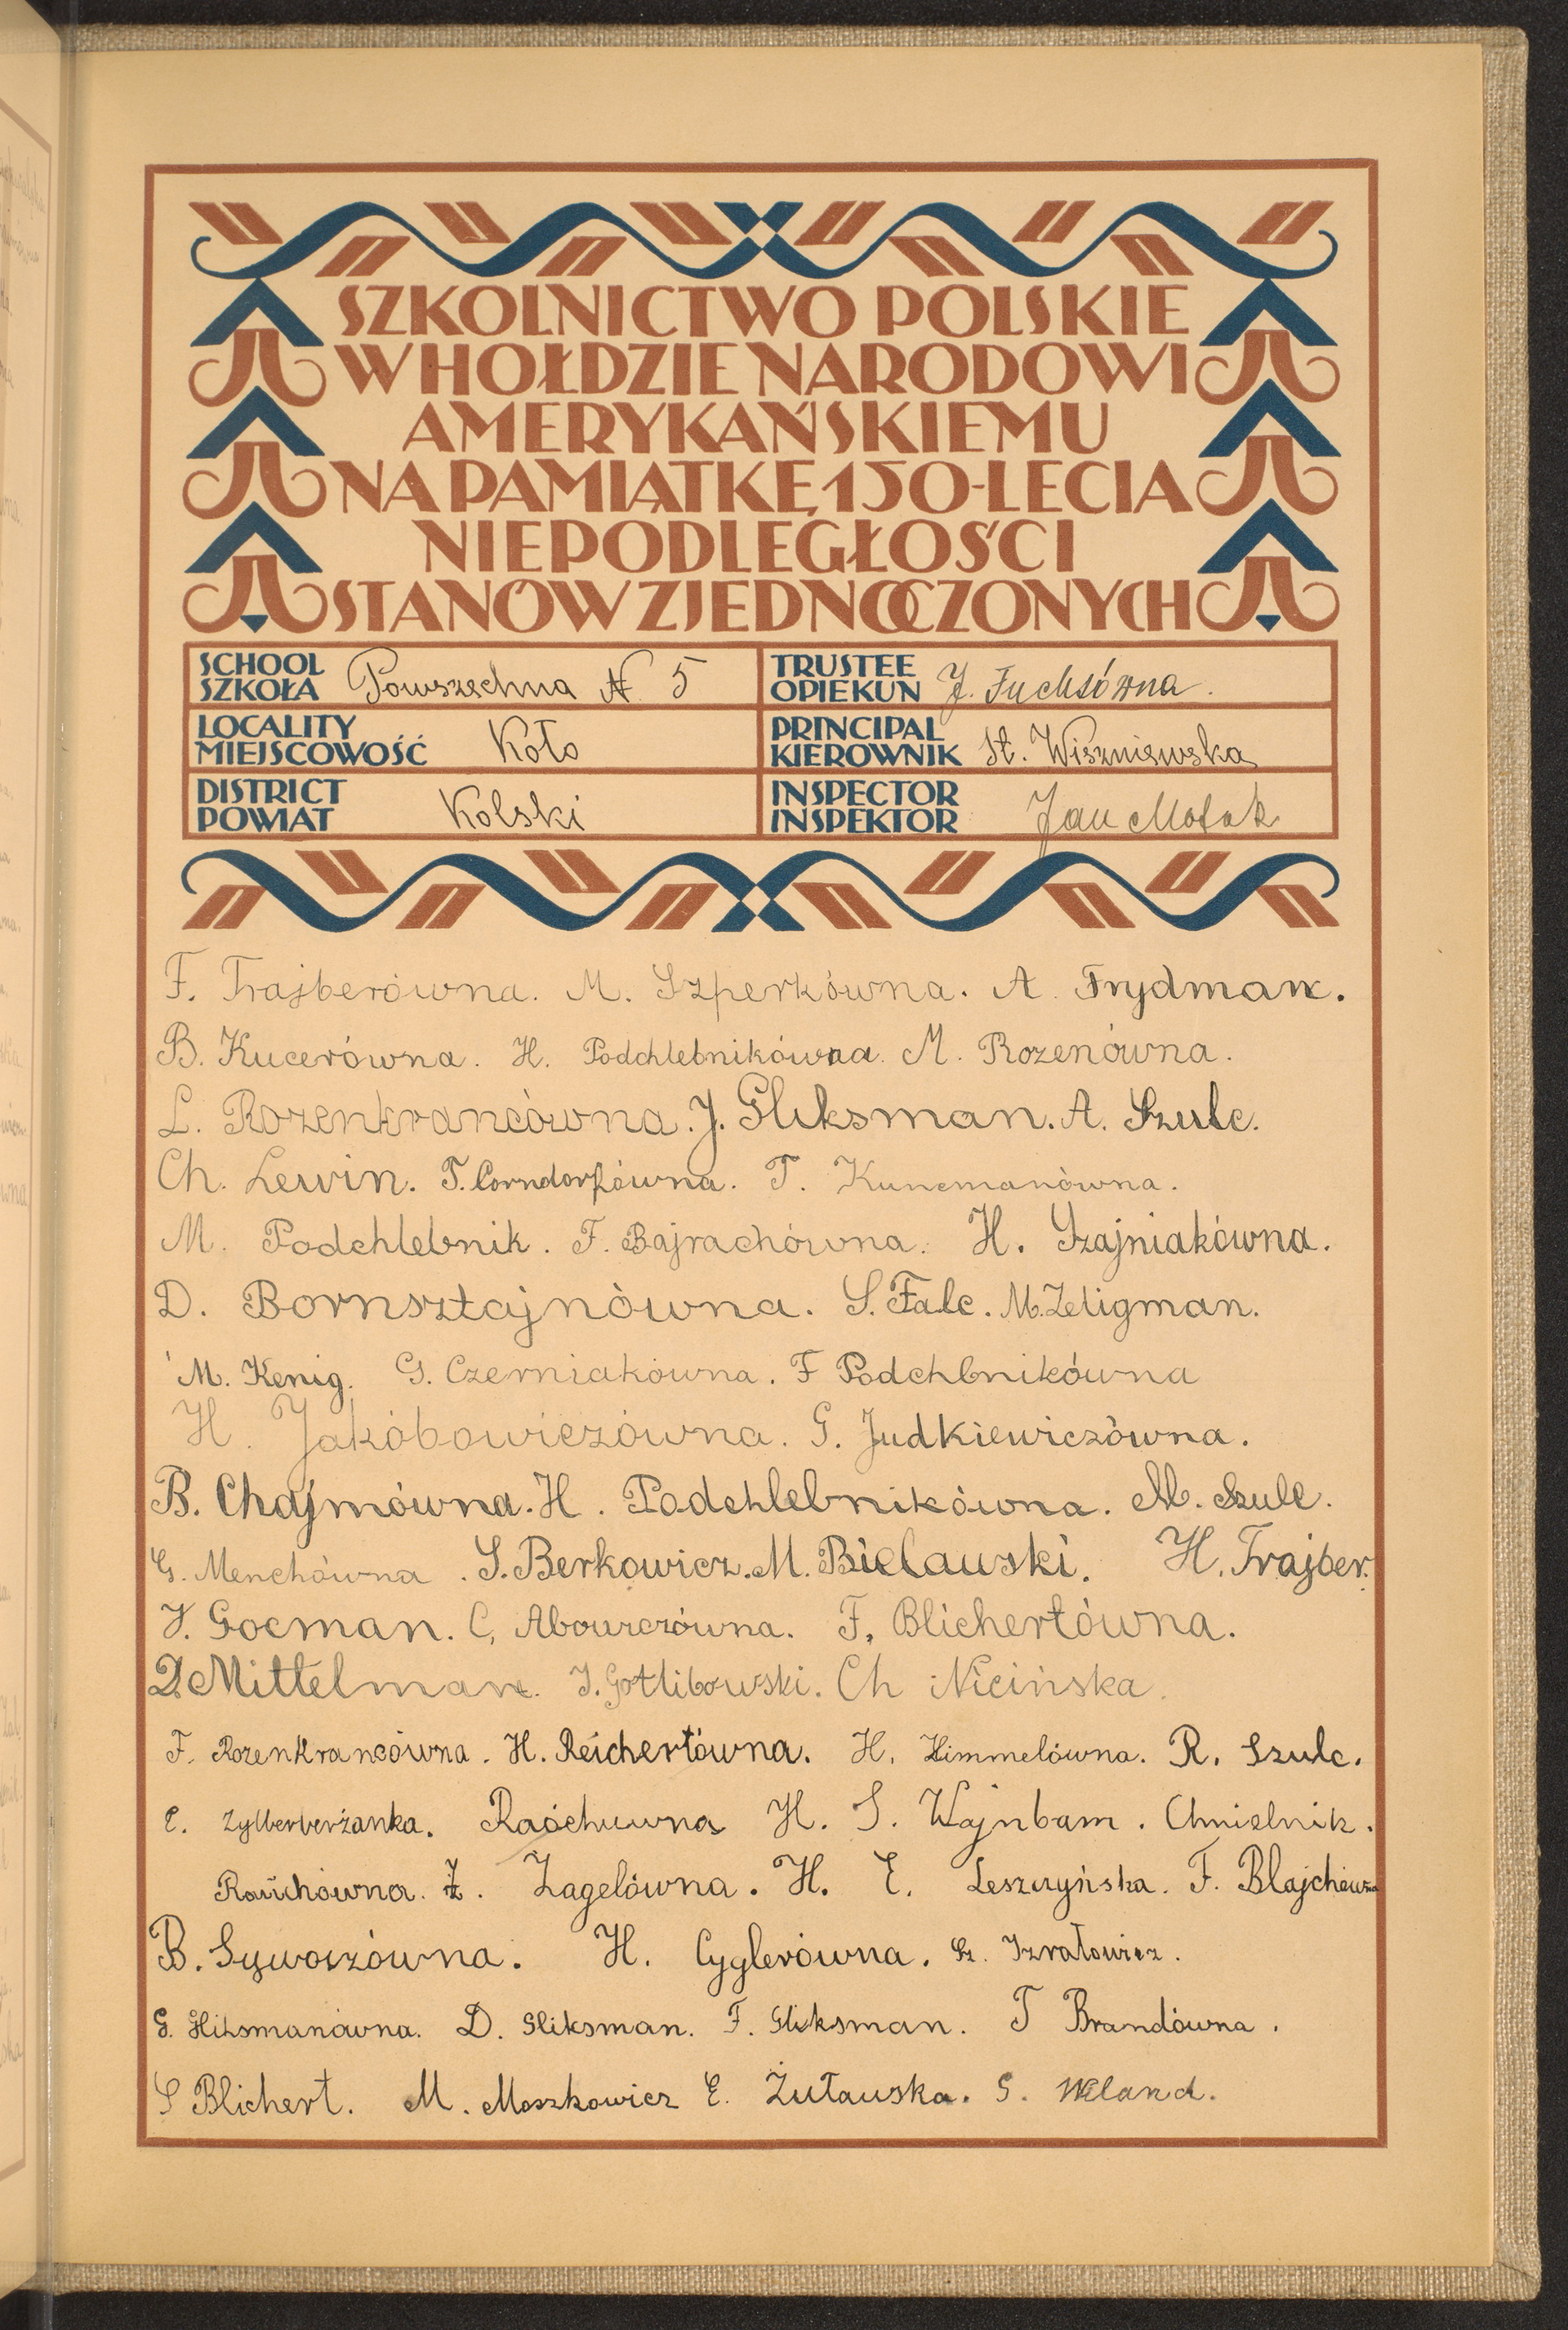 SZKOLNICTWO POLSKIE
W HOŁDZIE NARODOWI
AMERYKAŃSKIEMU
NA PAMIĄTKĘ 150-LECIA
NIEPODLEGŁOŚCI
STANÓW ZJEDNOCZONYCH
SCHOOL
SZKOŁA Powszechna № 5
TRUSTEE
OPIEKUN J. Fuchsówna.
LOCALITY
MIEJSCOWOŚĆ Koło
PRINCIPAL
KIEROWNIK St. Wiszniewska
DISTRICT
POWIAT Kolski
INSPECTOR
INSPEKTOR Jan
F. Trajberówna. M. Szperkówna. A. Frydman.
B. Kucerówna. H. Podchlebnikówna. M. Rozenówna.
L. Rozenkrancówna. J. Gliksman. A. Szulc.
Ch. Lewin. T. T. Kunemanówna.
M. Podchlebnik. F. Bajrachówna. H. Szajniakówna.
D. Bornsztajnówna. S. Falc. M. Zeligman.
M. Kenig. G. Czerniakówna. F Podchbnikówna
H. Jakóbowiczówna. G. Judkiewiczówna.
B. Chajmówna. H. Podchlebnikówna. M. Szulc.
G. Menchówna. S. Berkowicz. M. Bielauski. H. Trajber.
Gocman. C. F. Blichertówna.
D. Mittelman. Gotlibowski. Ch Nicińska.
F. Rozenkrancówna. H. Reichertówna. H. Himmelówna. R. Szulc.
E. Zylberberżanka. H. S. Wajnbam. Chmielnik.
Zagelówna. H. E. Leszczyńska. F. Blajchówna
B. Sywoszówna. H. Cyglerówna. Sz. Izrałowicz.
G. Gliksmanówna. D. Gliksman. F. Gliksman. T Brandówna.
S Blichert. M. Moszkowicz E. Żuławska. S.